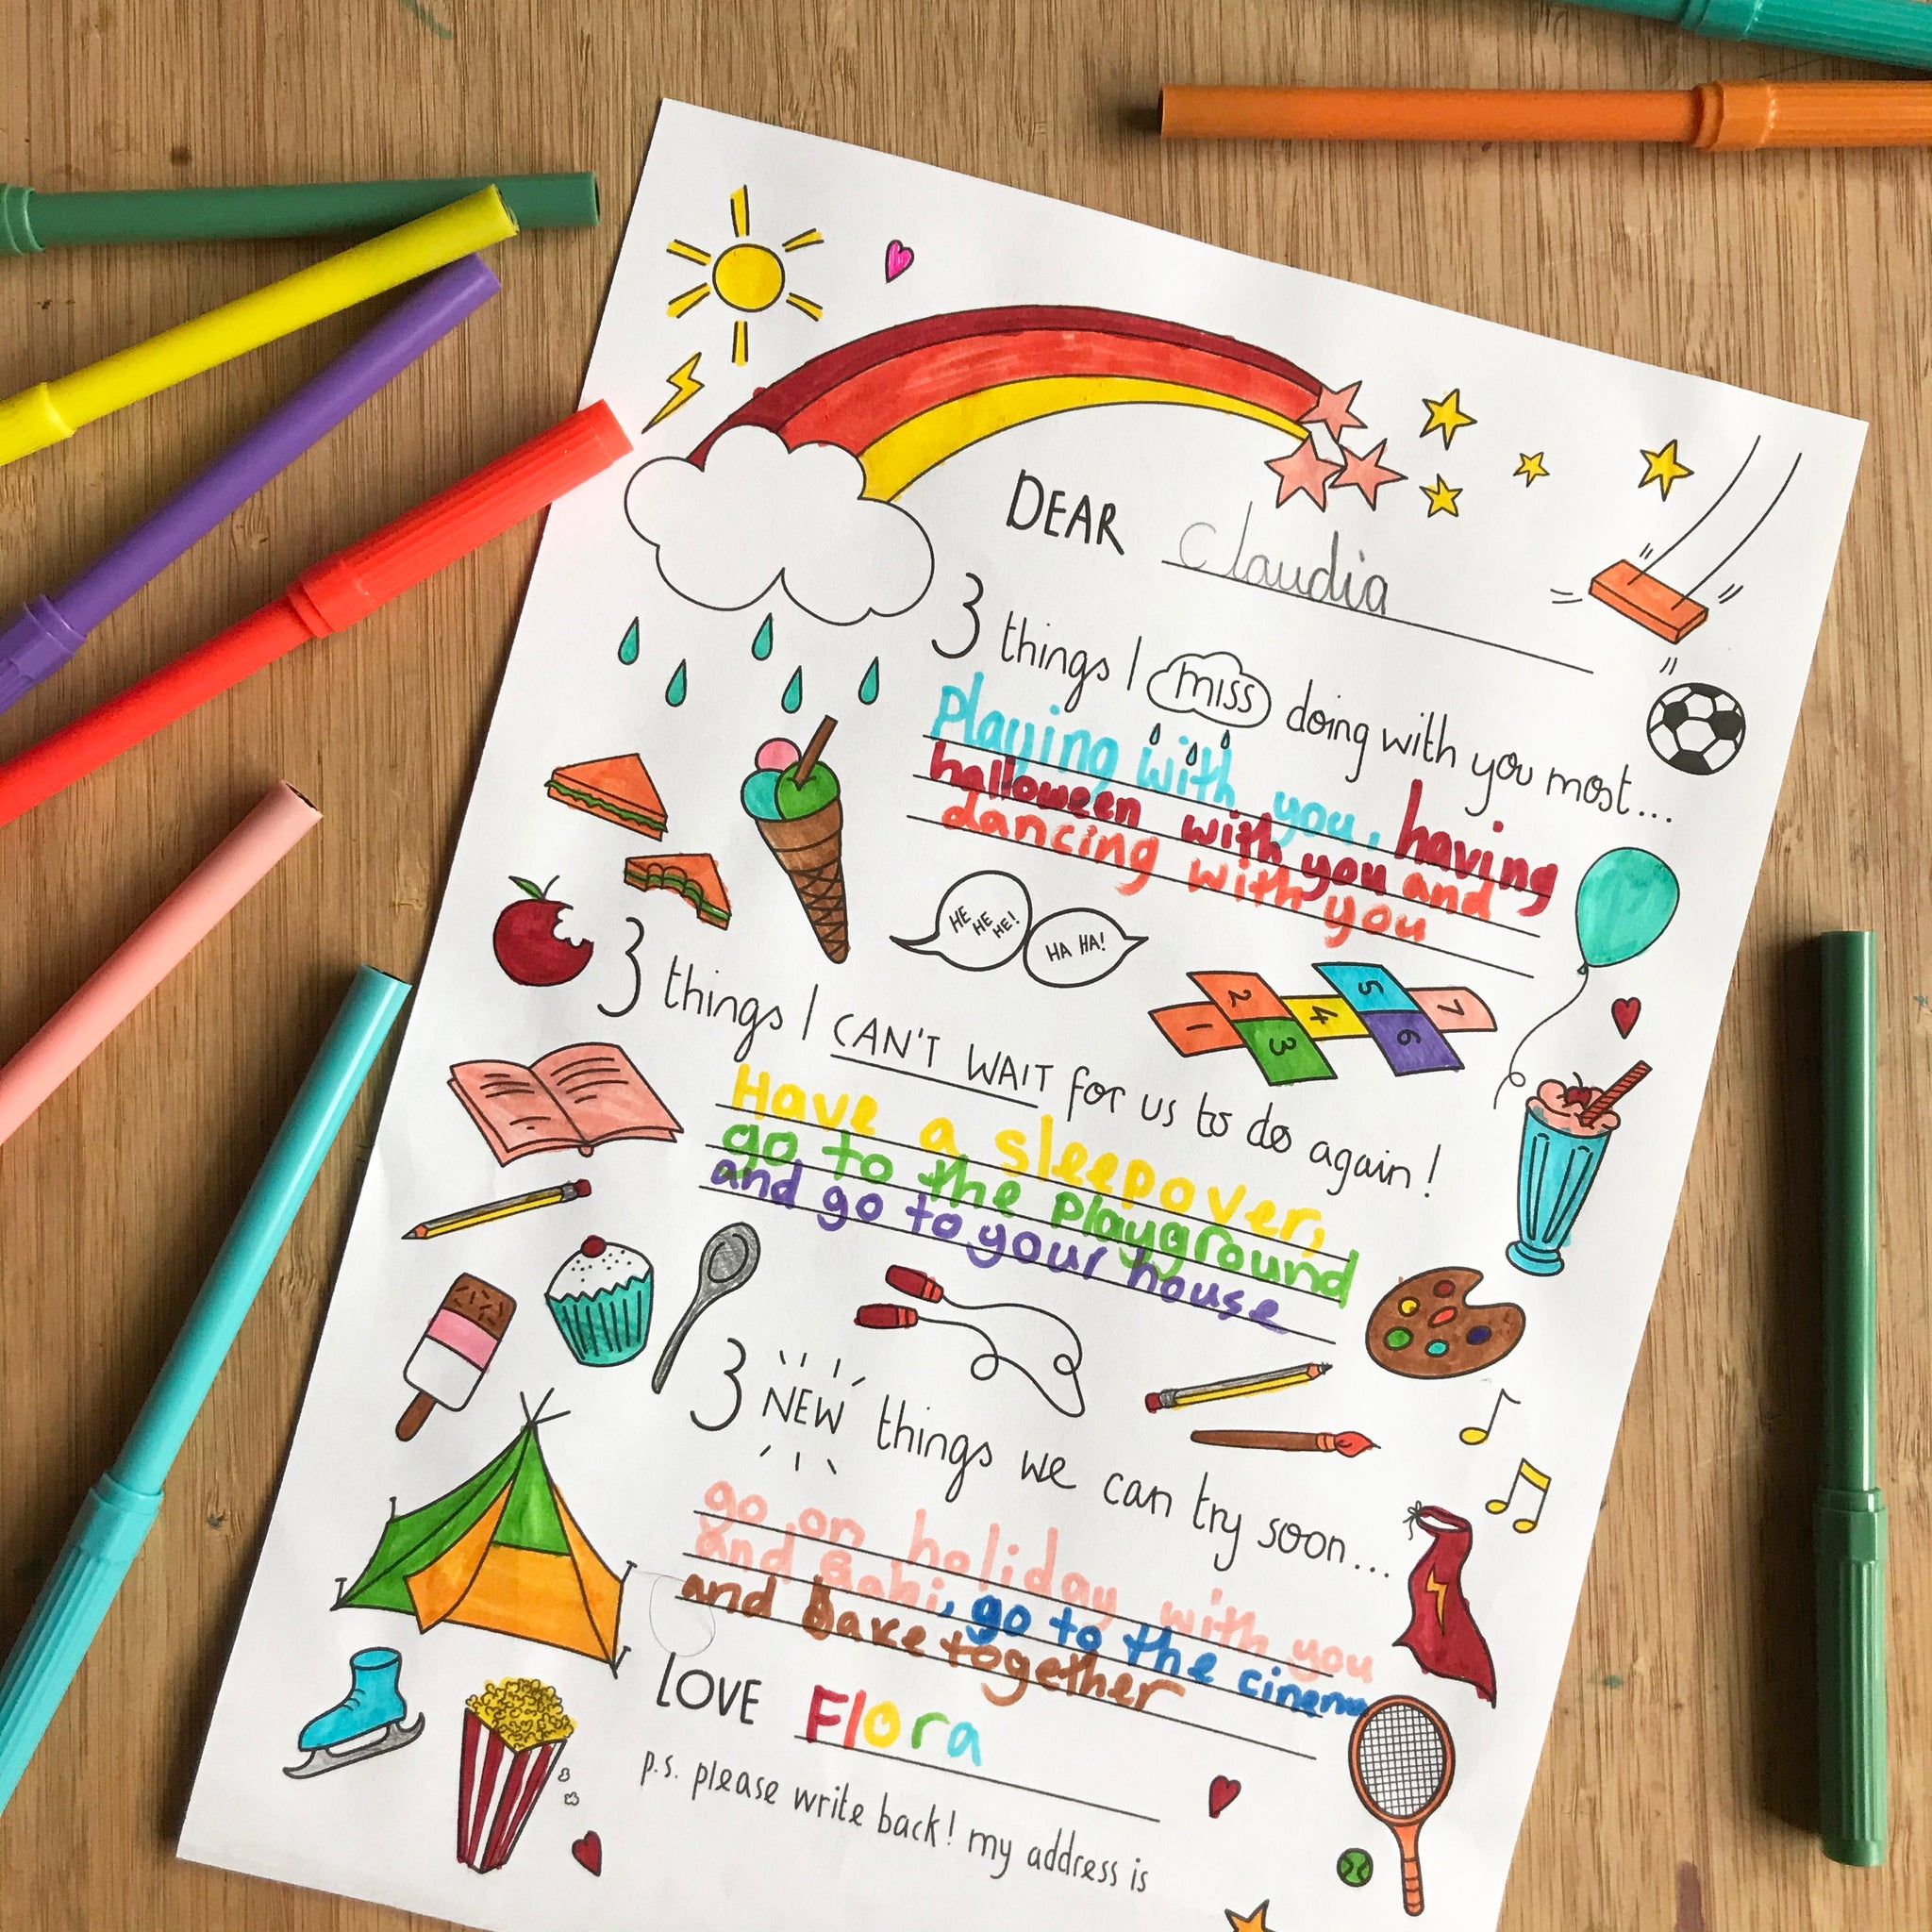 DEAR claudia
3 things I miss doing with you most...
Playing with you, having
halloween with you and
dancing with you
HE HE HE!
HA HA!
1 2 3 4 5 6 7
3 things I CAN'T WAIT for us to do again!
Have a sleepover,
go to the playground
and go to your house
3 NEW things we can try soon...
go on holiday with you
and , go to the cinema
and bake together
LOVE Flora
p.s. please write back! my address is